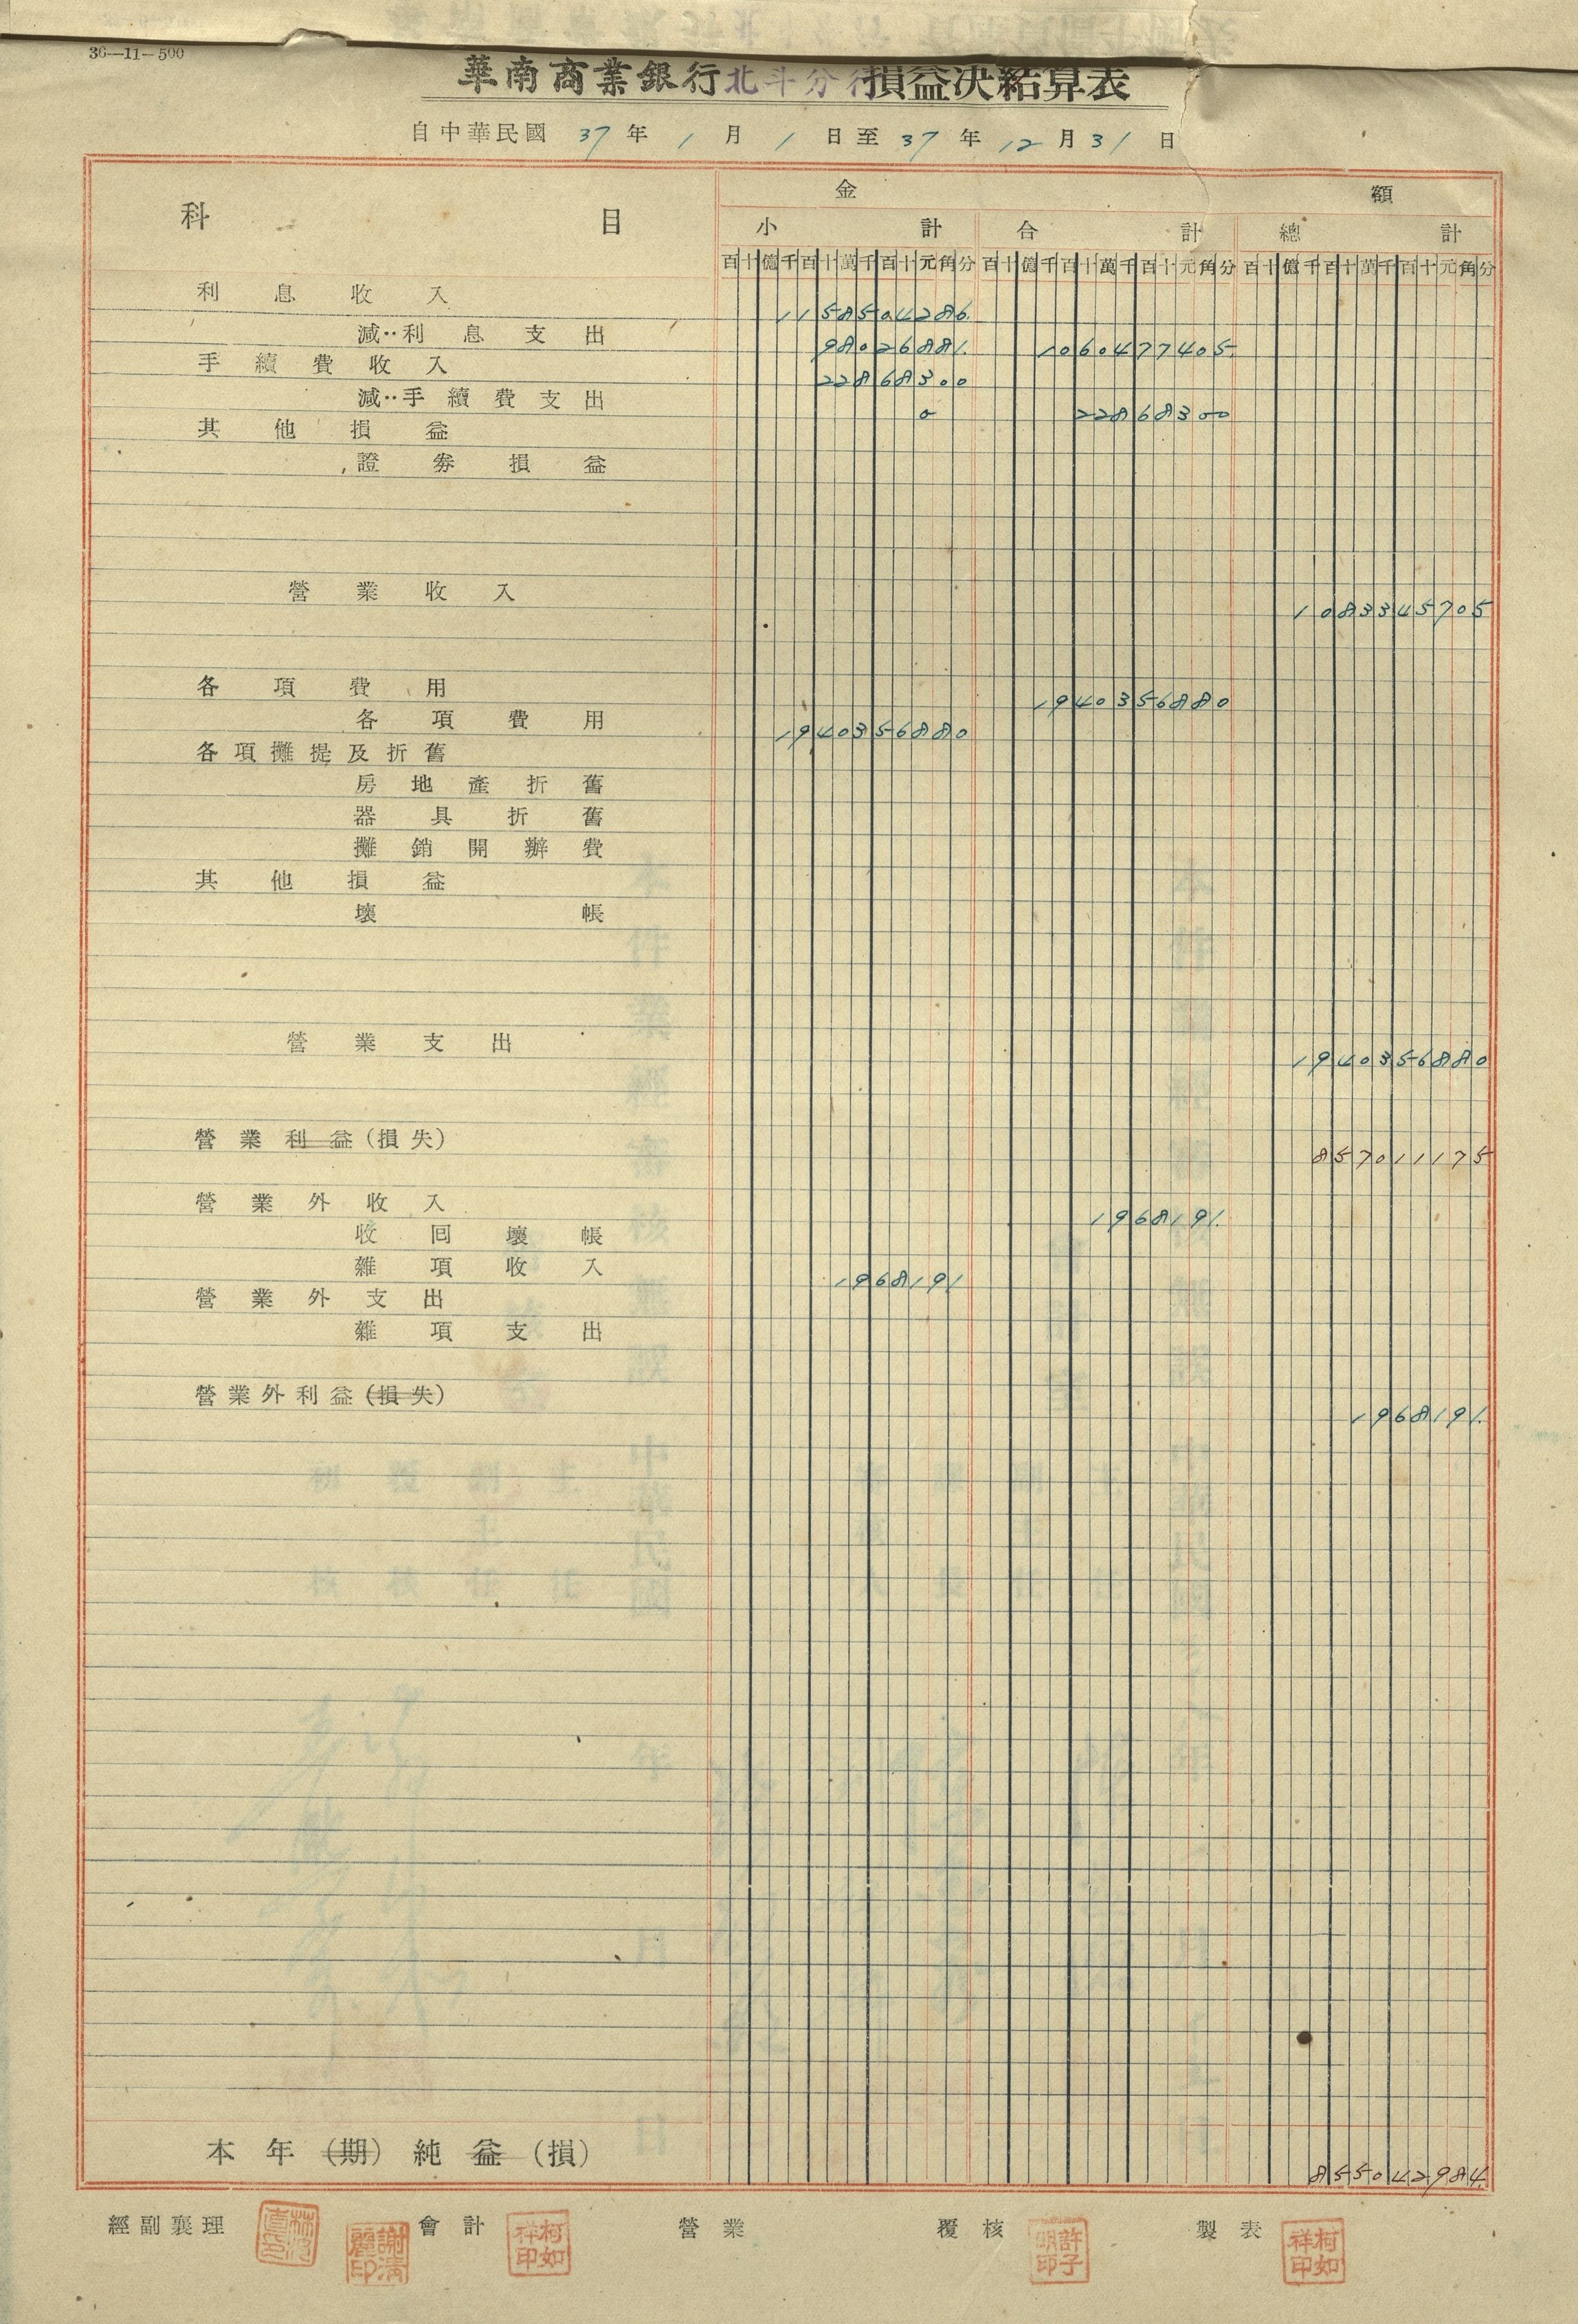 36—11—500
華南商業銀行北斗分行損益決結算表
自中華民國 37 年 1 月 1 日至 37 年 12 月 31 日
科 目 金 額
小 計 合 計 總 計
百十億千百十萬千百十元角分 百十億千百十萬千百十元角分 百十億千百十萬千百十元角分
利息收入 1158504286
減‥利息支出 98026881 1060477405
手續費收入 22868300
減‥手續費支出 0 22868300
其他損益
證券損益
營業收入 1083345705
各項費用 1940356880
各項費用 1940356880
各項攤提及折舊
房地產折舊
器具折舊
攤銷開辦費
其他損益
壞帳
營業支出 1940356880
營業利益(損失) 857011175
營業外收入 1968191
收回壞帳
雜項收入 1968191
營業外支出
雜項支出
營業外利益(損失) 1968191
本年(期)純益(損) 855042984
經副襄理 謝清麗印 會計 柯如祥印 營業 覆核 許子明印 製表 柯如祥印